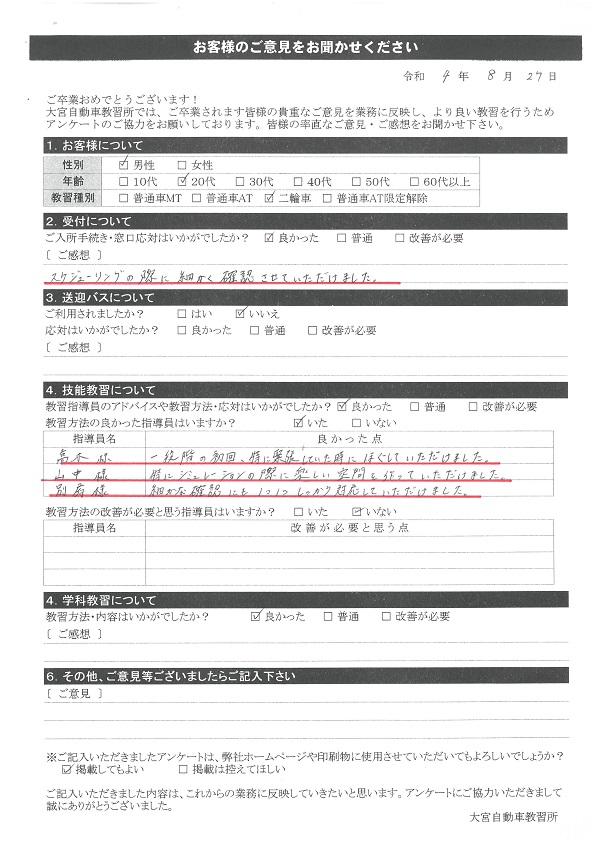 お客様のご意見をお聞かせください
令和 4 年 8 月 27 日
ご卒業おめでとうございます!
大宮自動車教習所では、ご卒業されます皆様の貴重なご意見を業務に反映し、より良い教習を行うため
アンケートのご協力をお願いしております。皆様の率直なご意見・ご感想をお聞かせ下さい。
1. お客様について
性別 ☑ 男性 □ 女性
年齢 □ 10代 ☑ 20代 □ 30代 □ 40代 □ 50代 □ 60代以上
教習種別 □ 普通車MT □ 普通車AT ☑ 二輪車 □ 普通車AT限定解除
2. 受付について
ご入所手続き・窓口応対はいかがでしたか? ☑ 良かった □ 普通 □ 改善が必要
[ ご感想 ]
スケジューリングの際に細かく確認させていただけました。
3. 送迎バスについて
ご利用されましたか? □ はい ☑ いいえ
応対はいかがでしたか? □ 良かった □ 普通 □ 改善が必要
[ ご感想 ]
4. 技能教習について
教習指導員のアドバイスや教習方法・応対はいかがでしたか? ☑ 良かった □ 普通 □ 改善が必要
教習方法の良かった指導員はいますか? ☑ いた □ いない
指導員名 良かった点
高木様 一段階の初回、特に緊張していた時にほぐしていただけました。
山中様 特にシュミレーションの際に楽しい空間を作っていただけました。
別府様 細かな確認にも1つ1つしっかり対応していただけました。
教習方法の改善が必要と思う指導員はいますか? □ いた ☑ いない
指導員名 改善が必要と思う点
4. 学科教習について
教習方法・内容はいかがでしたか? ☑ 良かった □ 普通 □ 改善が必要
[ ご感想 ]
6. その他、ご意見等ございましたらご記入下さい
[ ご意見 ]
※ご記入いただきましたアンケートは、弊社ホームページや印刷物に使用させていただいてもよろしいでしょうか?
☑ 掲載してもよい □ 掲載は控えてほしい
ご記入いただきました内容は、これからの業務に反映していきたいと思います。アンケートにご協力いただきまして
誠にありがとうございました。
大宮自動車教習所